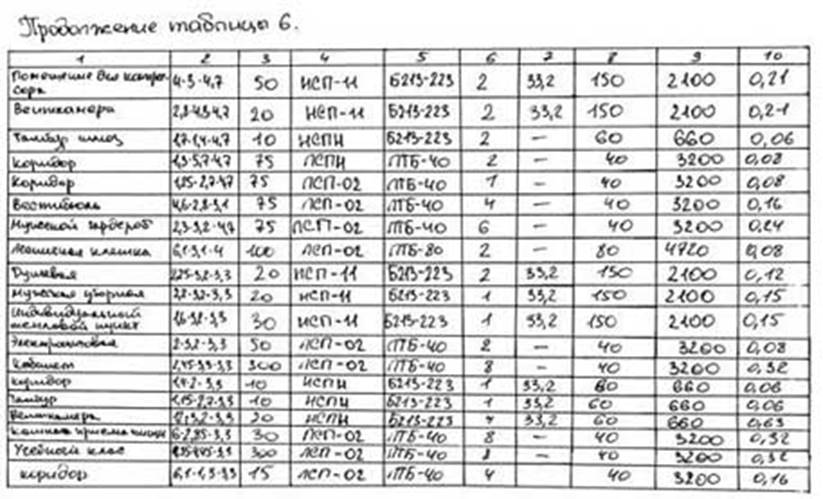 Продолжение таблицы 6.
1 2 3 4 5 6 7 8 9 10
Помещение для компрес-
сора 4-3-4,7 50 НСП-11 Б213-223 2 33,2 150 2100 0,21
Венткамера 2,8-4,3-4,7 20 НСП-11 Б213-223 2 33,2 150 2100 0,21
Тамбур шлюз 1,7-1,4-4,7 10 НСПН Б213-223 2 — 60 660 0,06
Коридор 1,3-5,7-4,7 75 ЛСПН ЛТБ-40 2 — 40 3200 0,08
Коридор 1,85-2,7-4,7 75 ЛСП-02 ЛТБ-40 1 — 40 3200 0,08
Вестибюль 4,6-2,8-3,1 75 ЛСП-02 ЛТБ-40 4 — 40 3200 0,16
Мужской гардероб 2,3-3,2-4,7 75 ЛСП-02 ЛТБ-40 6 — 40 3200 0,24
клетка 6,1-3,1-4 100 ЛСП-02 ЛТБ-80 2 — 80 4720 0,08
Душевая 2,25-3,2-3,3 20 НСП-11 Б213-223 2 33,2 150 2100 0,12
Мужская уборная 2,2-3,2-3,3 20 НСП-11 Б213-223 1 33,2 150 2100 0,15
Индивидуальный
тепловой пункт 1,6-3,2-3,3 30 НСП-11 Б213-223 1 33,2 150 2100 0,15
Электрощитовая 2-3,2-3,3 50 ЛСП-02 ЛТБ-40 2 — 40 3200 0,08
Кабинет 2,45-3,3-3,3 300 ЛСП-02 ЛТБ-40 8 — 40 3200 0,32
Коридор 1,4-2-3,3 10 НСПН Б213-223 1 33,2 60 660 0,06
Тамбур 1,15-2,7-3,3 10 НСПН Б213-223 1 33,2 60 660 0,06
Венткамера 12-3,2-3,3 20 НСПН Б213-223 4 33,2 60 660 0,63
Комната приема пищи 6-2,85-3,3 30 ЛСП-02 ЛТБ-40 8 — 40 3200 0,32
Учебный клас 300 ЛСП-02 ЛТБ-40 8 — 40 3200 0,32
коридор 6,1-1,3-3,3 15 ЛСП-02 ЛТБ-40 4 40 3200 0,16